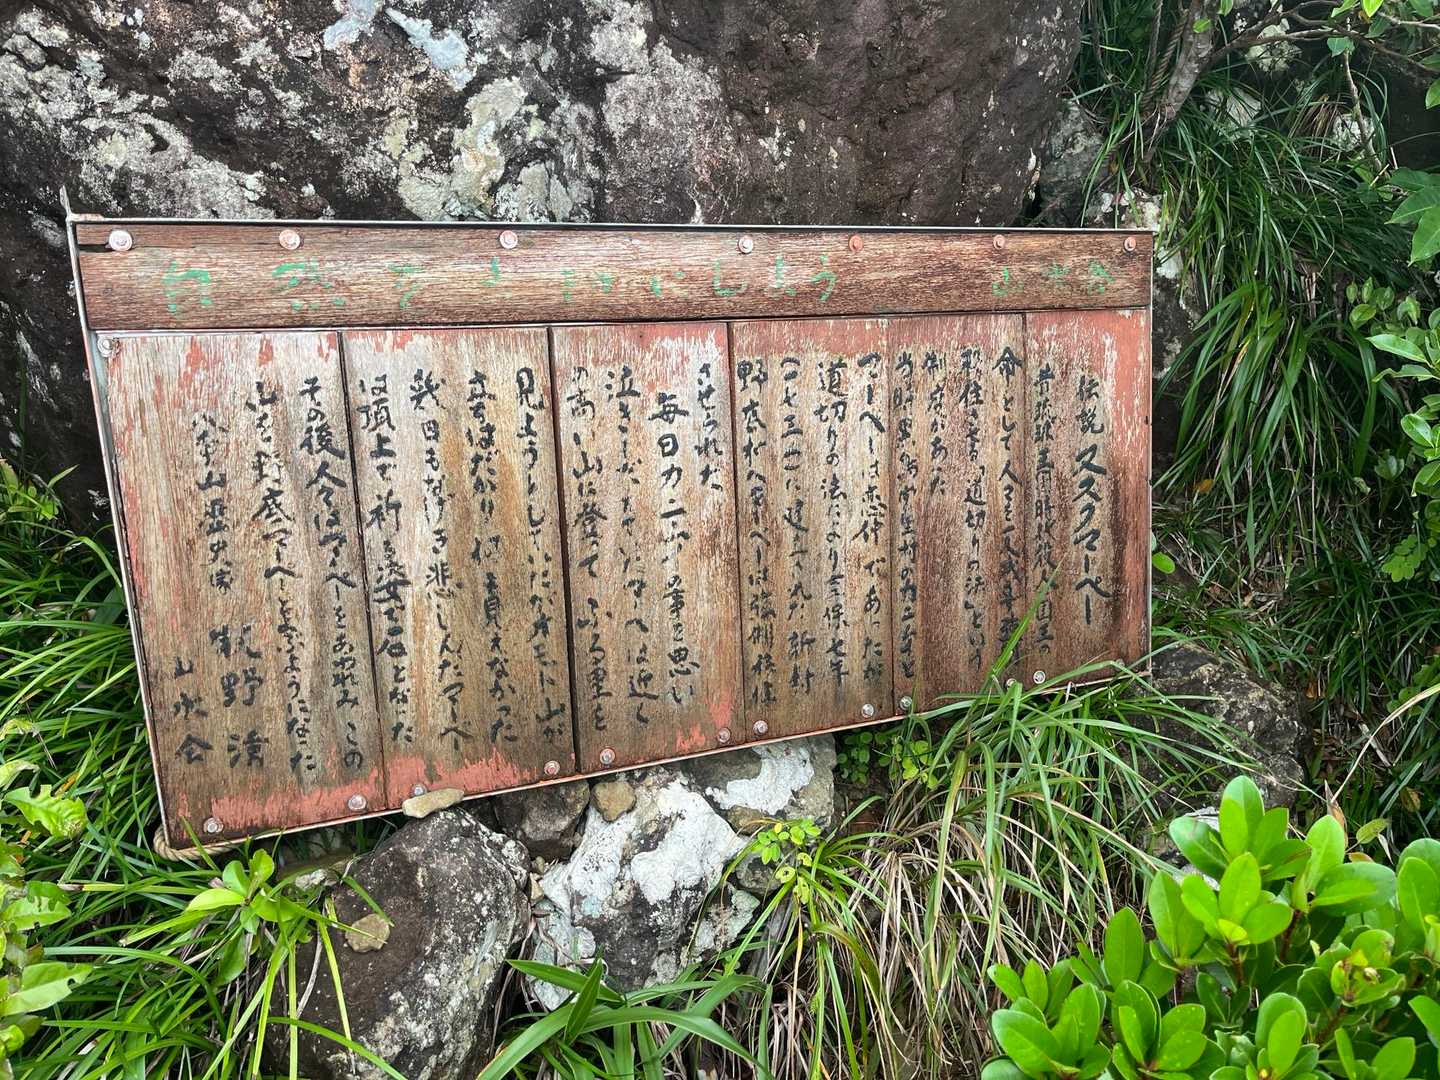 自然を大切にしましょう 山水会
伝説 ヌヌクマーペー
昔琉球王国時代役人国王の
命として人々を
移住させる「道切りの法」という
制度があった
当時黒島に生れのカニムイと
マーペーは恋仲であったが
道切りの法により享保七年
(一七三二)に建てられた新村
野底村へマーペーは強制移住
させられた
毎日カニムイの事を思い
泣きしたっていたマーペーは近く
の高い山に登って ふる里を
見ようとしていたがオモト山が
立ちはだかり何も見えなかった
幾日もなげき悲しんだマーペー
は頂上で祈る姿で石となった
その後人々はマーペーをあわれみ この
山を野底マーペーと呼ぶようになった
八重山歴史家 牧野 清
山水会